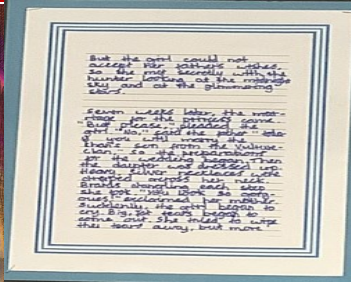 But the girl could not
accept her father's wishes,
so she met secretly with the
hunter looking at the midnight
sky and at the glimmering
stars.
Seven weeks later, the
for the princess came.
"But please," the
girl "No," said the
you will marry the
Khan's son from the Vulture-
clan." so preparations
for the wedding began. Then
the daughter was dressed up.
Heavy silver necklaces were
draped across her neck.
Braids dangling each step
she took "You look so gorg-
eous" exclaimed her mother.
Suddenly, the girl began to
cry. Big, fat tears began to
come out. She tried to wipe
the tears away, but more